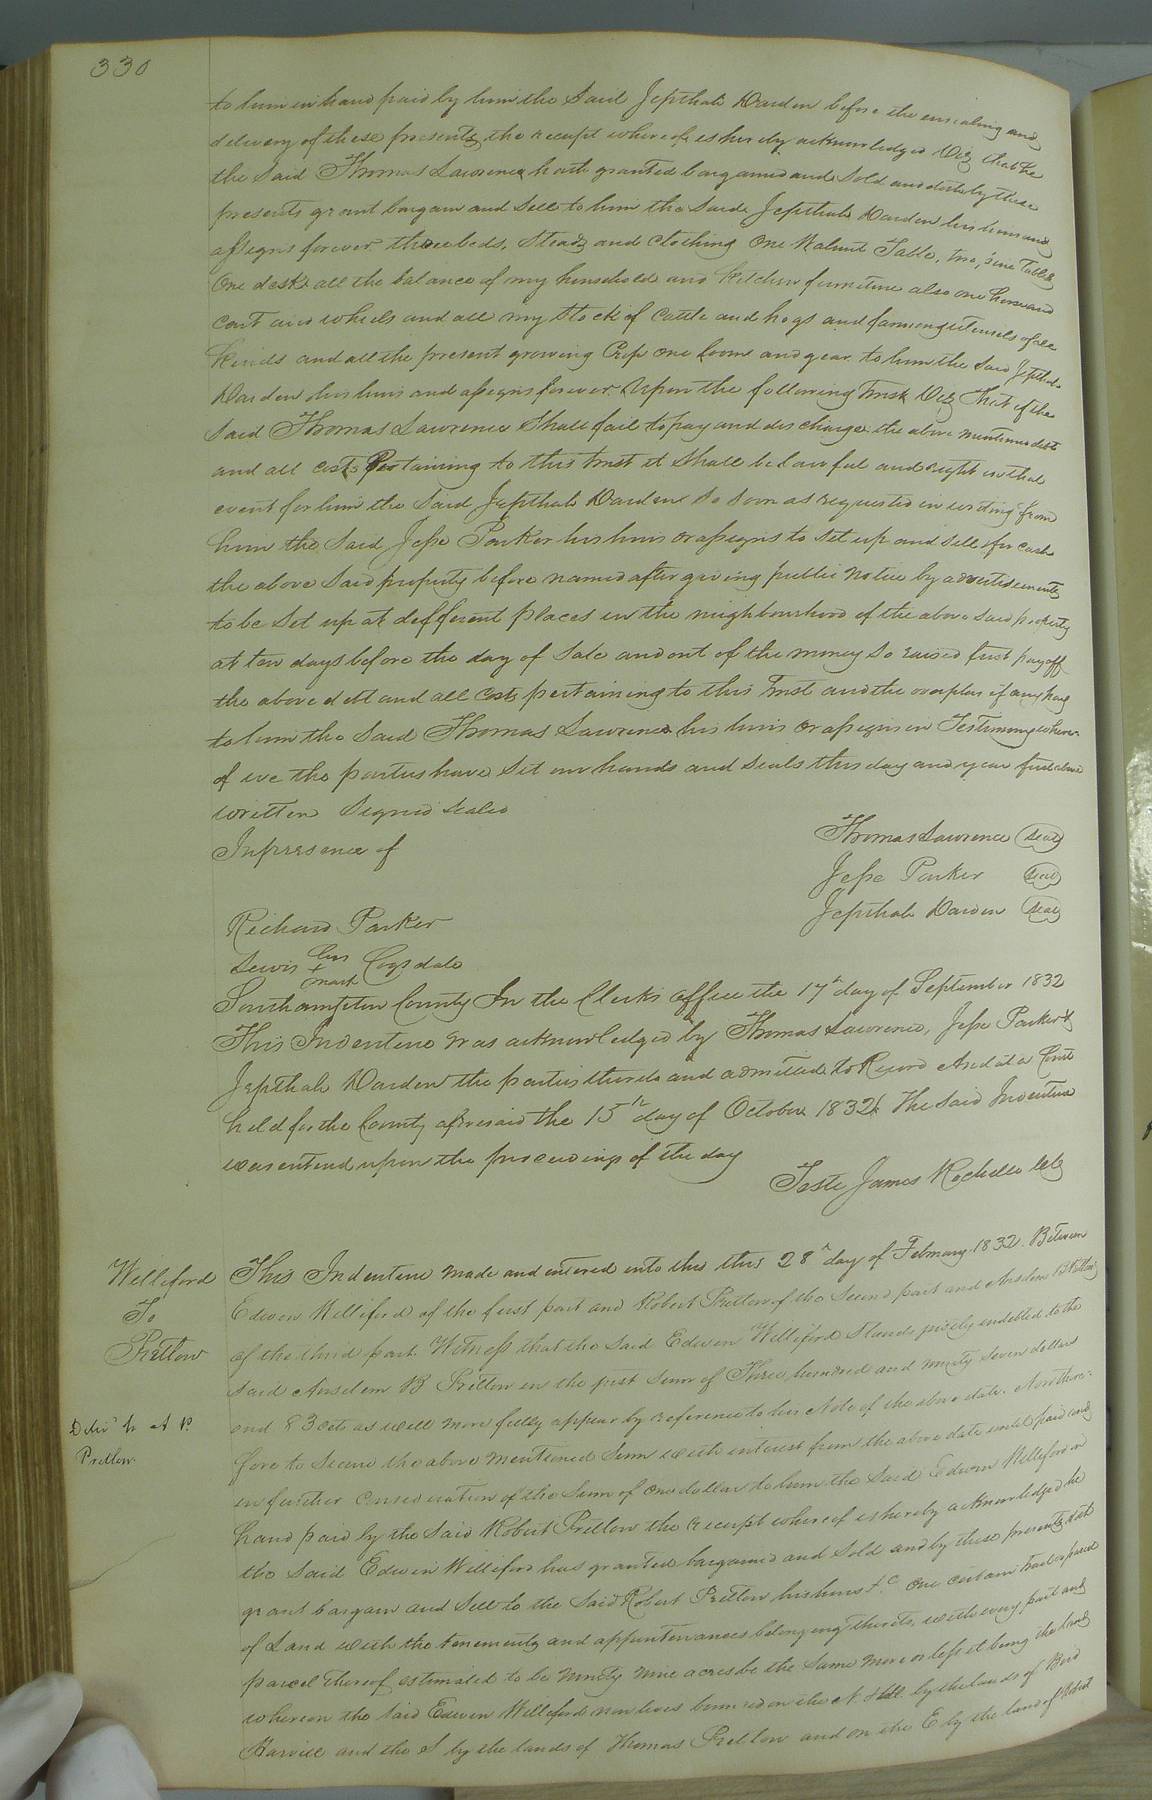 330
to him in hand paid by him the Said Jepthah Darden before the ensealing and
delivery of these presents the receipt whereof is hereby acknowledged Viz that he
the Said Thomas Lawrence hath granted bargained and Sold and doth by these
presents grant bargain and Sell to him the Said Jepthah Darden his heirs and
assigns forever three beds, Steads and Clothing One Walnut Table, two pine Tables
One desk all the balance of my household and Kitchen furniture also one horse and
Cart and wheels and all my Stock of Cattle and hogs and farming utensils of all
Kinds and all the present growing Crop One loom and gear to him the Said Jepthah
Darden his heirs and assigns forever Upon the following Trust Viz That if the
Said Thomas Lawrence Shall fail to pay and discharge the above mentioned debt
and all costs Pertaining to this trust it Shall be lawful and right in that
event for him the Said Jepthah Darden So Soon as requested in writing from
him the Said Jesse Parker his heirs or assigns to Set up and Sell for cash
the above Said property before named after giving public notice by advertisements
to be Set up at different places in the neighbourhood of the above said property
at ten days before the day of Sale and out of the money So raised first pay off
the above debt and all Costs pertaining to this Trust and the overplus if any pay
to him the Said Thomas Lawrence his heirs or assigns in Testimony where-
of we the parties have Set our hands and Seals this day and year first above
written Signed Sealed
In presence of
Thomas Lawrence Seal
Jesse Parker Seal
Jepthah Darden Seal
Richard Parker
Lewis his + mark Cogsdale
Southampton County In the Clerks Office the 17th day of September 1832
This Indenture was acknowledged by Thomas Lawrence, Jesse Parker &
Jepthah Darden the parties thereto and admitted to Record And at a Court
held for the County aforesaid the 15th day of October 1832. The Said Indenture
was entered upon the proceedings of the day
Teste James Rochelle Clk
Williford
To
Pretlow
Deliv'd to A B
Pretlow
This Indenture made and entered into this this 28th day of February 1832. Between
Edwin Williford of the first part and Robert Pretlow of the Second part and Anselem B Pretlow
of the third part. Witness that the Said Edwin Williford Stands justly indebted to the
Said Anselem B Pretlow in the just Sum of Three hundred and ninety Seven dollars
and 83 cts as will more fully appear by reference to his Note of the above date. Now there-
fore to Secure the above mentioned Sum with interest from the above date until paid and
in further consideration of the Sum of One dollar to him the Said Edwin Williford in
hand paid by the Said Robert Pretlow the receipt whereof is hereby acknowledged he
the Said Edwin Williford has granted bargained and Sold and by these presents doth
grant bargain and Sell to the Said Robert Pretlow his heirs &c One certain tract or parcel
of Land with the tenements and appurtenances belonging thereto, with every part and
parcel thereof estimated to be ninety nine acres be the Same more or less it being the land
whereon the Said Edwin Williford now lives bounded on the N. & W. by the lands of Bird
Harvill and the S by the lands of Thomas Pretlow and on the E by the land of